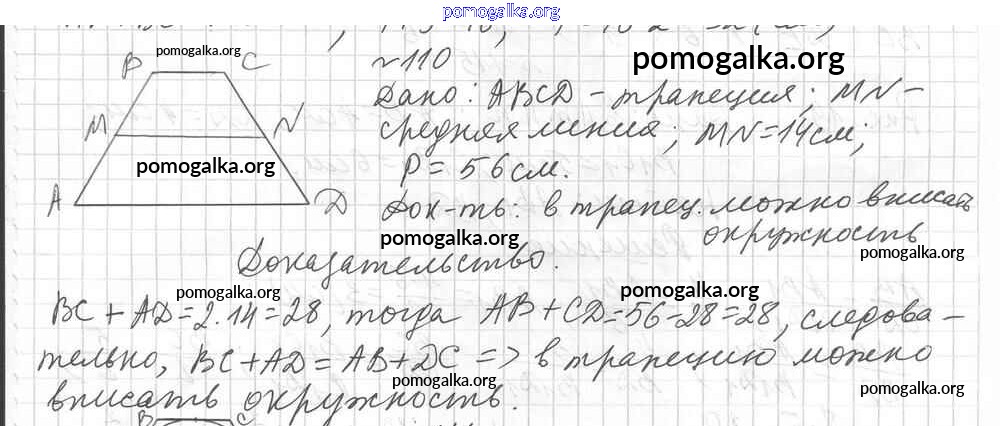 pomogalka.org
№110
pomogalka.org
pomogalka.org
B C
Дано: ABCD - трапеция; MN -
M N
средняя линия; MN = 14 см;
pomogalka.org
P = 56 см.
A D
Док-ть: в трапец. можно вписать
окружность
pomogalka.org
pomogalka.org
Доказательство.
pomogalka.org
pomogalka.org
BC + AD = 2·14 = 28, тогда AB + CD = 56 - 28 = 28, следова-
тельно, BC + AD = AB + DC => в трапецию можно
pomogalka.org
pomogalka.org
вписать окружность.
B C